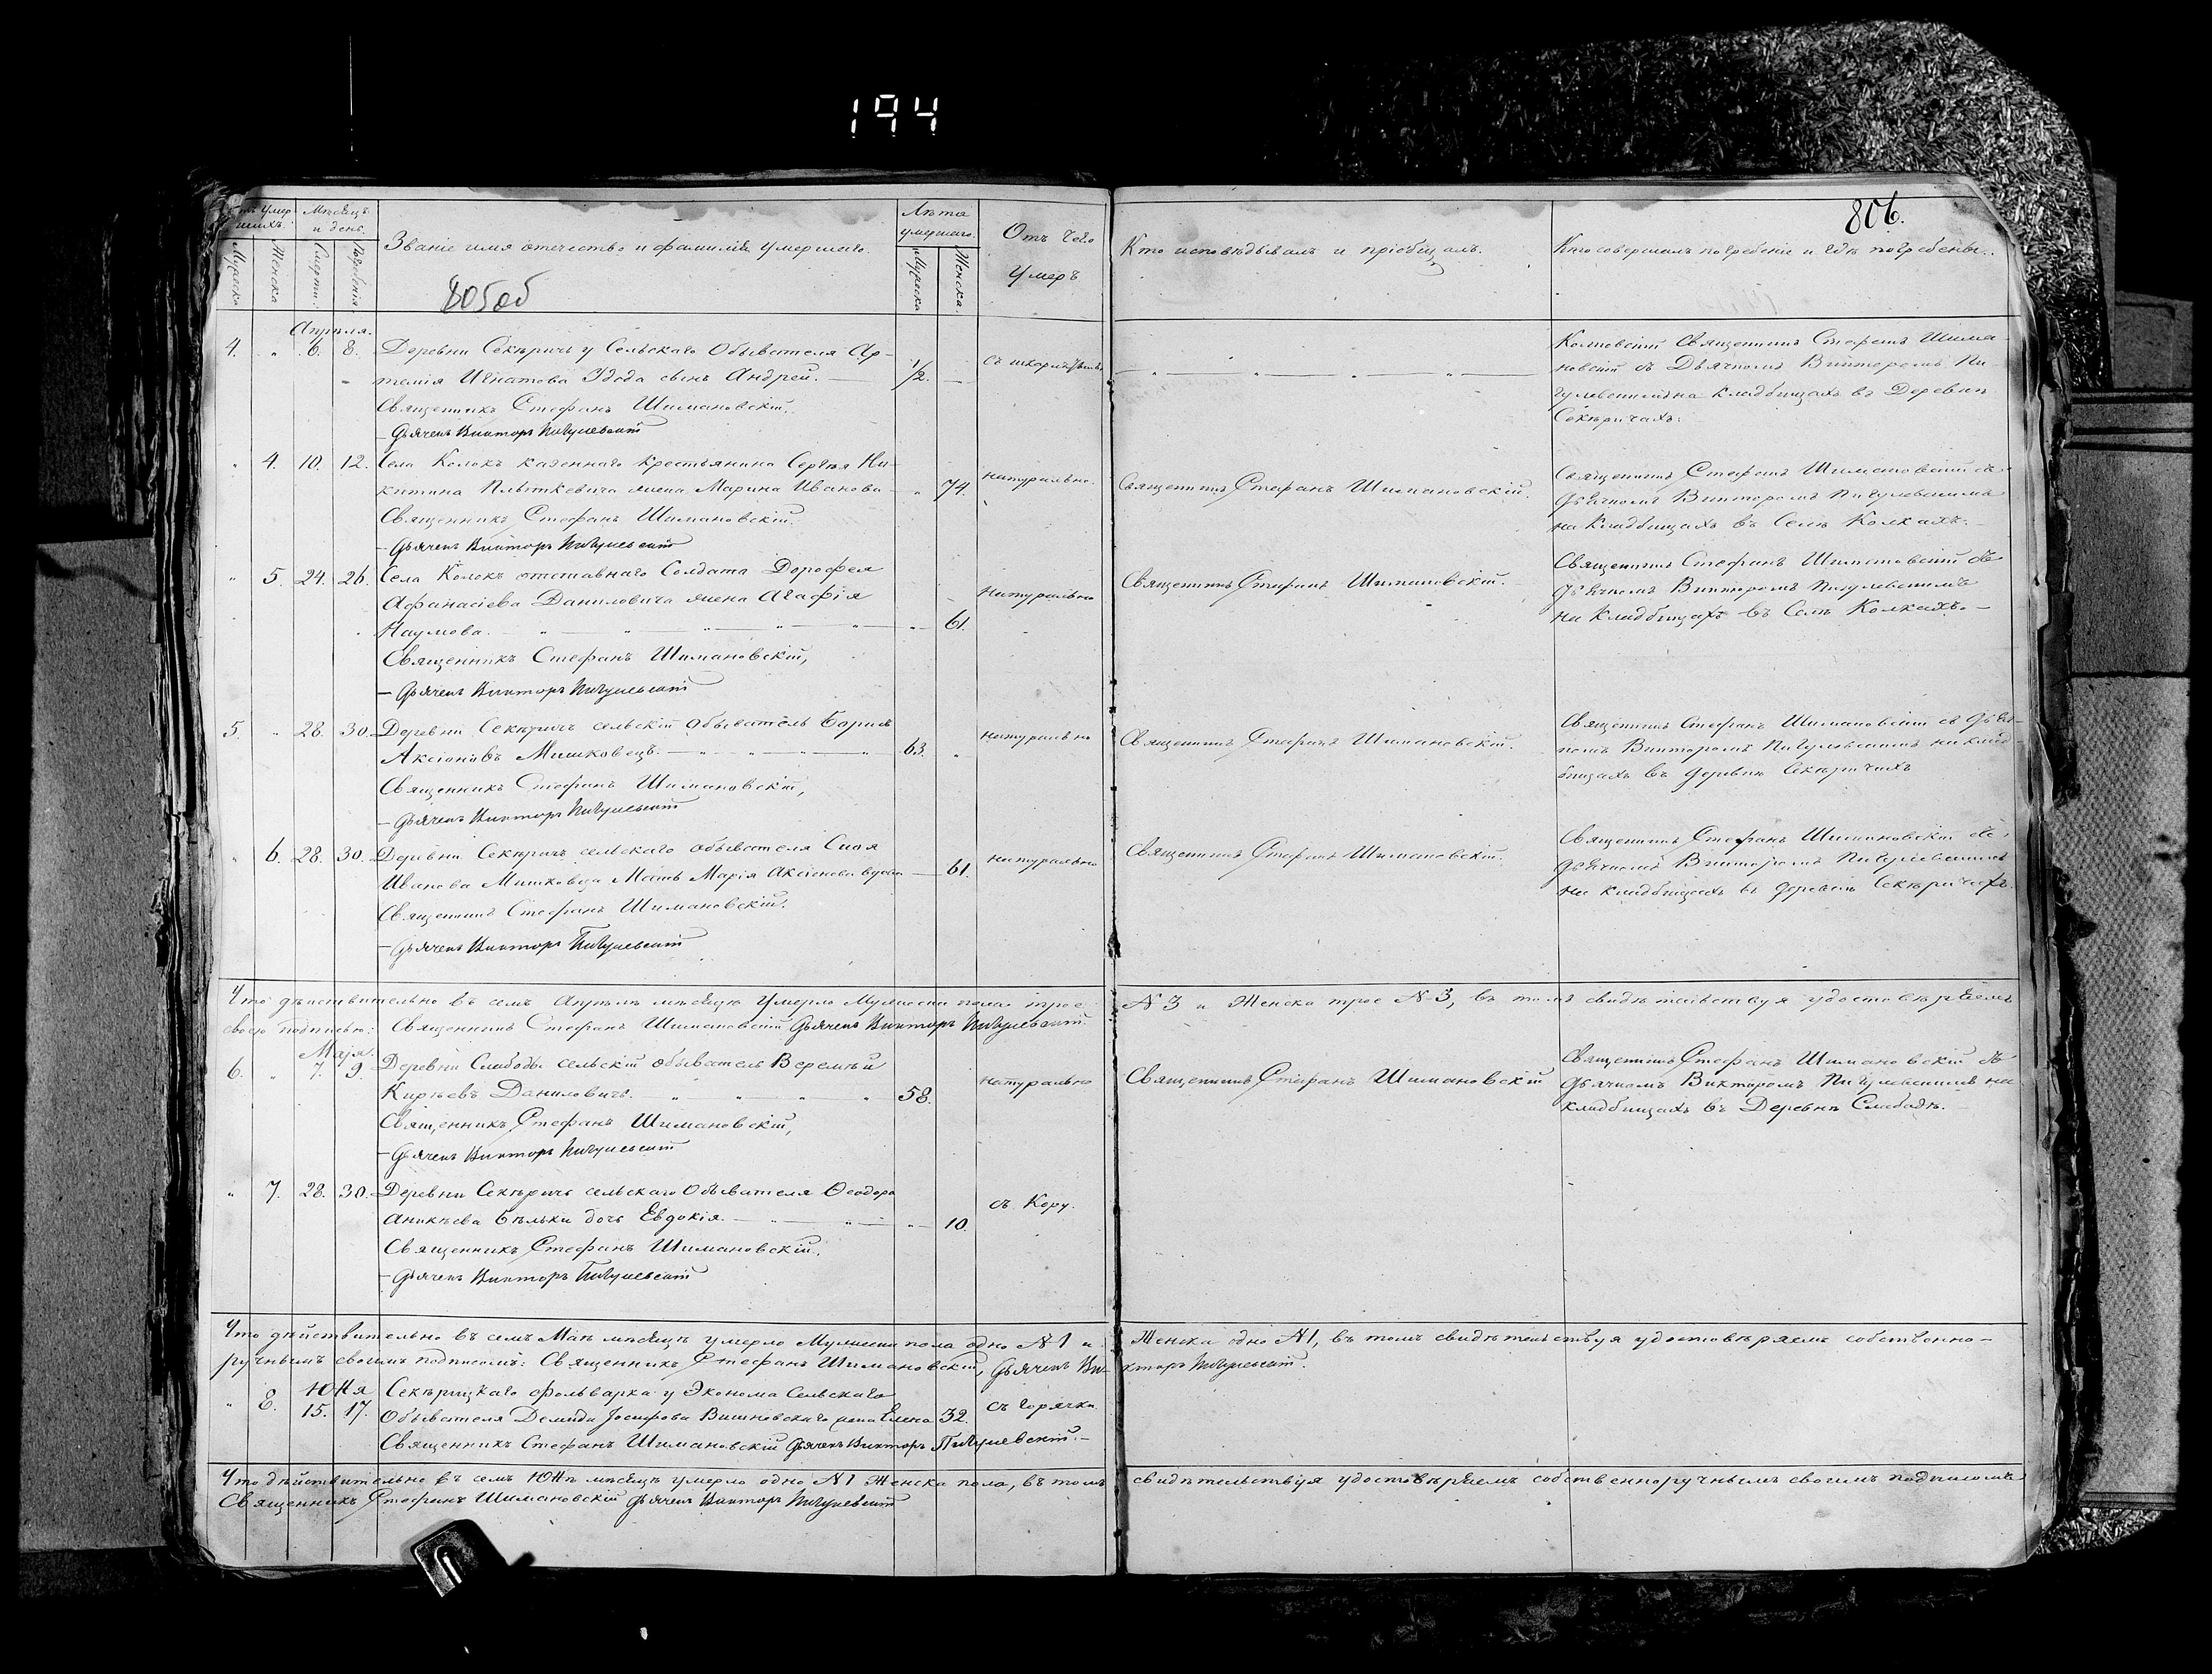 194
806.
умер
шихъ.
Мѣсяцъ
и день.
Мужеска
Женска
Смерти.
Погребенія.
Званіе имя отечество и фамилія умершаго.
805об
Лѣта
умершаго.
Мужеска
Женска.
Отъ чего
умеръ
Кто исповѣдывалъ и пріобщалъ.
Кто совершалъ погребеніе и гдѣ погребены.
Апрѣля.
4. " 6. 8. Деревни Секѣричъ у Сельскаго Обывателя Ар-
темія Игнатова сынъ Андрей. 1/2.
Священникъ Стефанъ Шимановскій.
Дьячекъ Викторъ Пигулевскій
Священникъ Стефанъ Шима-
новскій съ Дьячкомъ Викторомъ Пи-
гулевскимъ на кладбищахъ въ Деревни
Секѣричахъ.
" 4. 10. 12. Села Колокъ казеннаго крестьянина Сергѣя Ни-
китина жена Марина Иванова " 74. натурально.
Священникъ Стефанъ Шимановскій.
Дьячекъ Викторъ Пигулевскій
Священникъ Стефанъ Шимановскій.
Священникъ Стефанъ Шимановскій съ
Дьячкомъ Викторомъ Пигулевскимъ
на Кладбищахъ въ Селѣ Колкахъ.
" 5. 24. 26. Села Колокъ отставнаго Солдата Дорофея
Афанасіева Даниловича жена Агафія
Наумова. " 61. Натурально
Священникъ Стефанъ Шимановскій,
Дьячекъ Викторъ Пигулевскій
Священникъ Стефанъ Шимановскій.
Священникъ Стефанъ Шимановскій съ
Дьячкомъ Викторомъ Пигулевскимъ
на Кладбищахъ въ Селѣ Колкахъ.
5. " 28. 30. Деревни Секѣричъ сельскій обыватель Борисъ
Аксіоновъ Мишковецъ. 63. " натурально
Священникъ Стефанъ Шимановскій,
Дьячекъ Викторъ Пигулевскій
Священникъ Стефанъ Шимановскій.
Священникъ Стефанъ Шимановскій съ Дьяч-
комъ Викторомъ Пигулевскимъ на клад-
бищахъ въ деревни Секѣричахъ
" 6. 28. 30. Деревни Секѣричъ сельскаго обывателя
Иванова Мишковца Мать Марія Аксіонова вдова 61. натурально
Священникъ Стефанъ Шимановскій.
Дьячекъ Викторъ Пигулевскій
Священникъ Стефанъ Шимановскій.
Священникъ Стефанъ Шимановскій съ
Дьячкомъ Викторомъ Пигулевскимъ
на кладбищахъ въ деревнѣ Секѣричахъ.
Что дѣйствительно въ семъ Апрѣлѣ мѣсяцѣ умерло Мужеска пола трое N 3 и Женска трое N 3, въ томъ свидѣтельствуя удостовѣряемъ
своею подписью: Священникъ Стефанъ Шимановскій Дьячекъ Викторъ Пигулевскій.
Маія.
6. " 7. 9. Деревни Слабоды сельскій обыватель Веремѣй
Кирѣевъ Даниловичъ. 58. натурально
Священникъ Стефанъ Шимановскій,
Дьячекъ Викторъ Пигулевскій
Священникъ Стефанъ Шимановскій
Священникъ Стефанъ Шимановскій съ
Дьячкомъ Викторомъ Пигулевскимъ на
кладбищахъ въ Деревнѣ Слабодѣ.
" 7. 28. 30. Деревни Секѣричъ сельскаго Обывателя Ѳеодора
Аникѣева Бѣльки дочь Евдокія. " 10. съ Кору.
Священникъ Стефанъ Шимановскій.
Дьячекъ Викторъ Пигулевскій
Что дѣйствительно въ семъ Маѣ мѣсяцѣ умерло Мужески пола одно N 1 и Женска одно N 1, въ томъ свидѣтельствуя удостовѣряемъ собственно-
ручнымъ своимъ подписомъ: Священникъ Стефанъ Шимановскій, Дьячекъ Викторъ Пигулевскій.
Юня
" 8. 15. 17. Секѣрицкаго фольварка у Эконома Сельскаго
Обывателя Демида Іосифова Вишневскаго жена Елена 32. съ Горячки
Священникъ Стефанъ Шимановскій Дьячекъ Викторъ Пигулевскій.
Что дѣйствительно въ семъ Юнѣ мѣсяцѣ умерло одно N 1 Женска пола, въ томъ свидѣтельствуя удостовѣряемъ собственноручнымъ своимъ подписомъ
Священникъ Стефанъ Шимановскій Дьячекъ Викторъ Пигулевскій